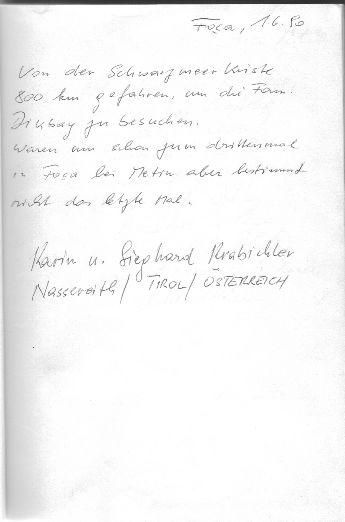 Foça, 16.90
Von der Schwarzmeerküste
800 km gefahren, um die Fam.
Dikbay zu besuchen.
Waren nun schon zum drittenmal
in Foça bei Metin aber bestimmt
nicht das letzte Mal.
Karin u. Sieghard Krabichler
Nassereith / TIROL / ÖSTERREICH